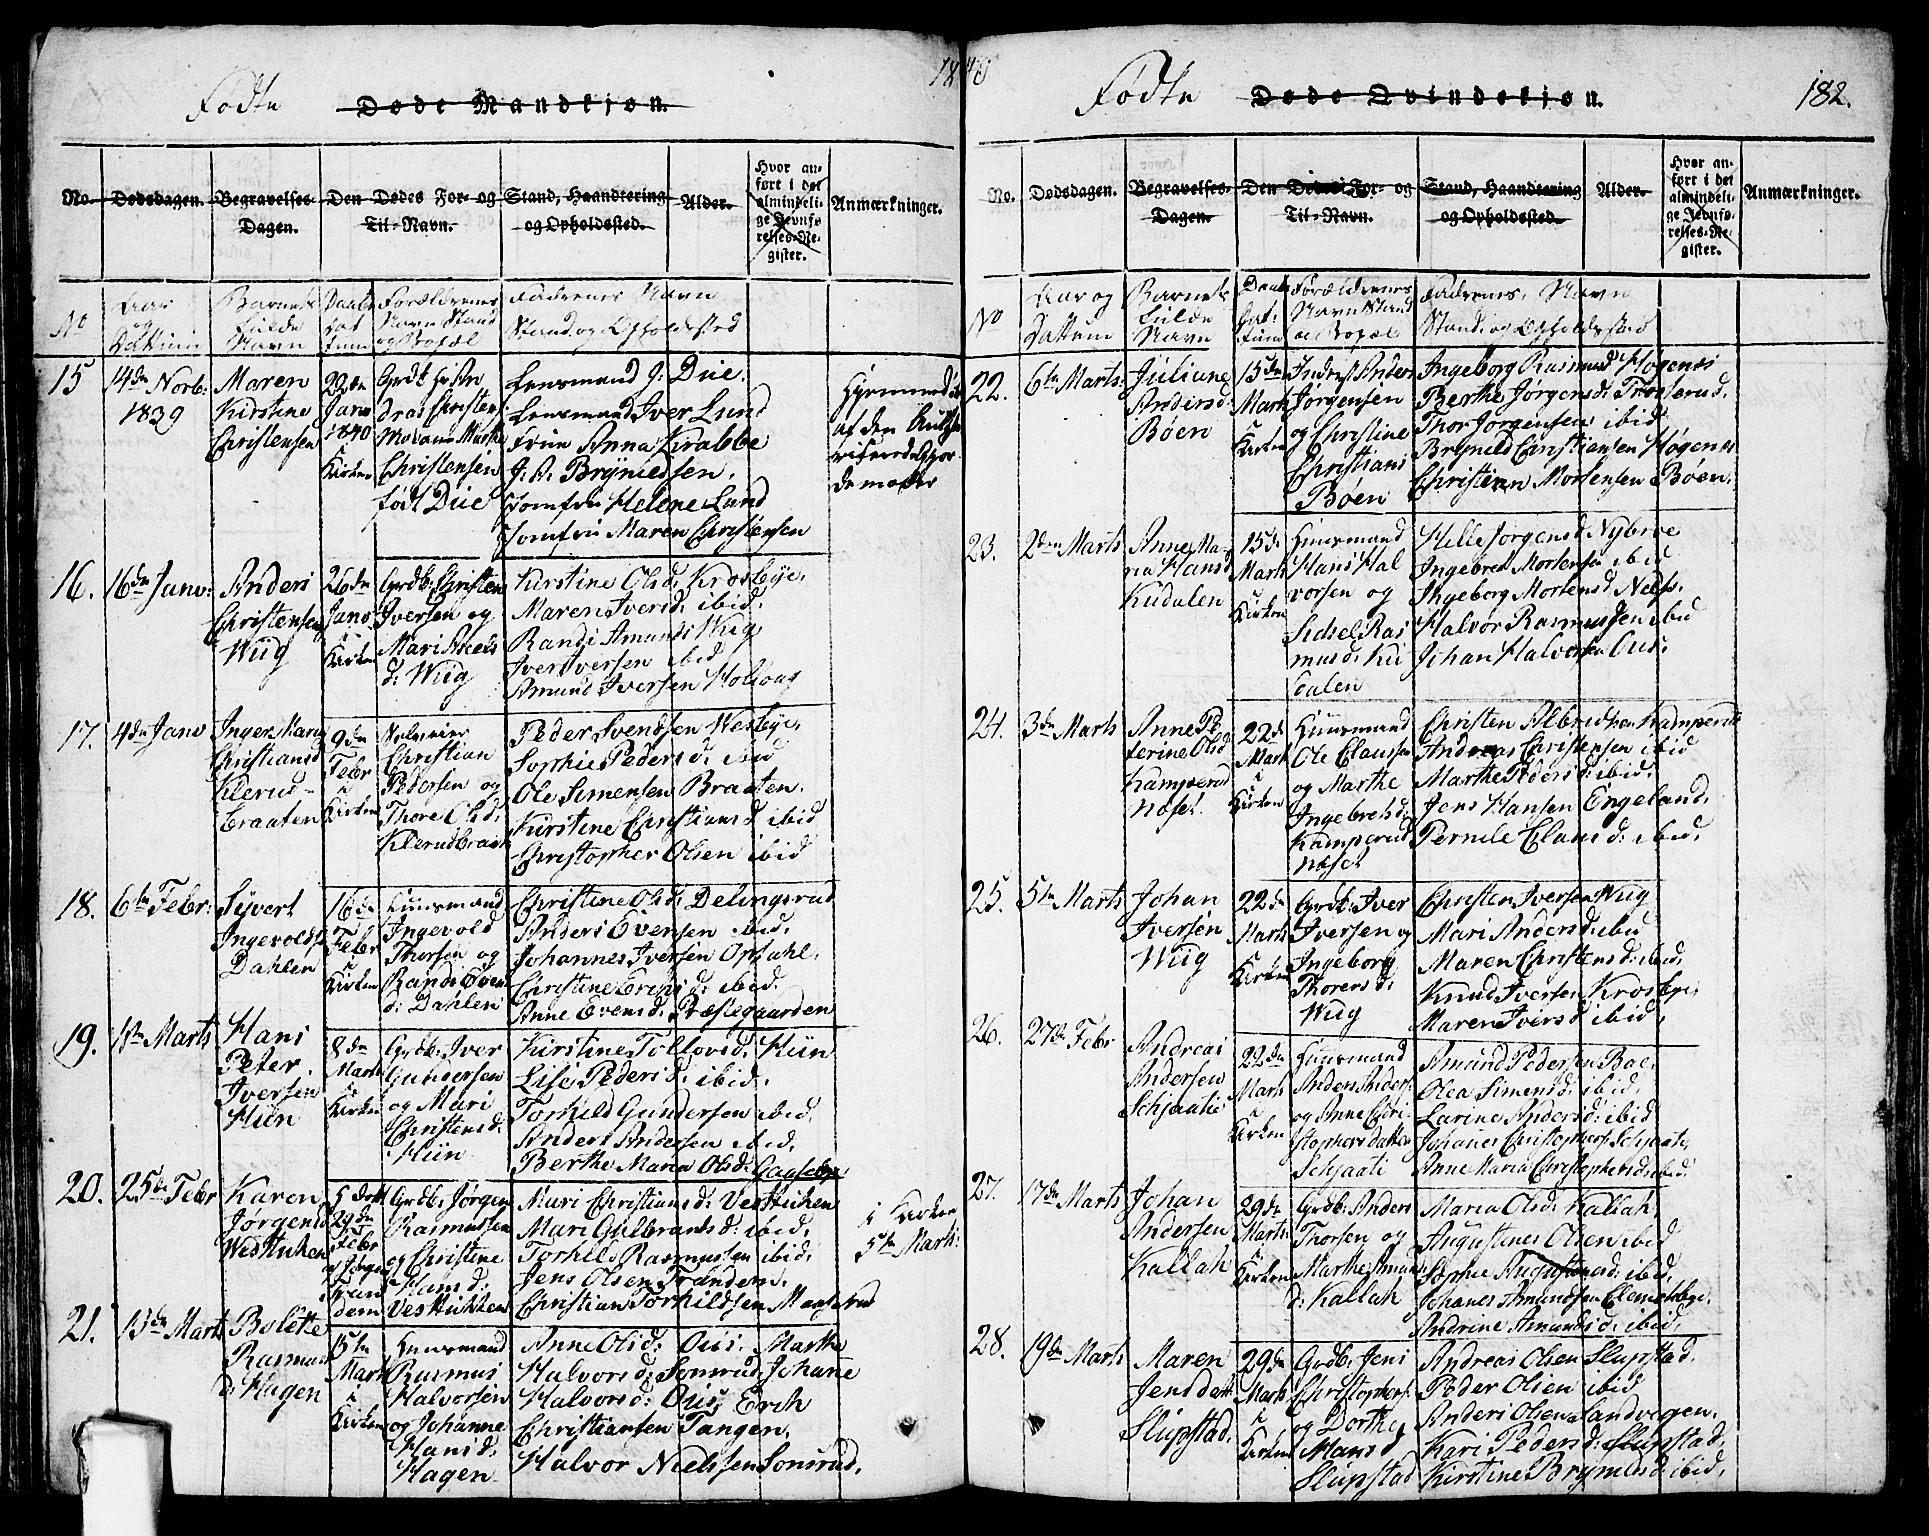 1840
Fødte Døde Mandkjøn.
No. Dødsdagen. Begravelses-Dagen. Den Dødes For- og Til-Navn. Stand, Haandtering og Opholdssted. Alder. Hvor anført i det almindelige Jevnførelses-Register. Anmærkninger.
No Aar og Dattum Barnets fulde Navn Daabs Dattum Forældrenes Navn Stand og Bopæl Fadrenes Navn Stand og Opholdssted
15 14de Novb: 1839
Maren
Kirstine
Christensen
22de
Janv
1840
Kirken
Christensen
født Due
Lensmand J: Due.
Lensmand Iver Lund
Frue Anna Krabbe
J. A. Bryniessen.
Jomfru Helene Lund
Jomfru Maren Christensen
Hjemmedøbt
af den
demoder
16. 16de Janv:
Anders
Christensen
Wiig
26de
Janv:
i
Kirken
Grdb: Christen
Iversen og
Mari
d: Wiig
Kirstine Olsd: Krosbye.
Maren Iversd: ibid.
Randi Amunds Wiig
Iver Iversen ibid
Amund Iversen Holsoug
17. 4de Janv
Inger Marie
Christiansd
Klerud-
braaten
9de
Febr
i
Kirken
Christian
Pedersen og
Thore Olsd:
Klerudbraat
Peder Svendsen Wesbye.
Sophie Pedersd: ibid
Ole Simensen Braaten.
Kirstine Christiansd ibid
Christopher Olsen ibid
18. 6te Febr:
Syvert
Ingevolds
Dahlen
16de
Febr
i
Kirken
Huusmand
Ingevold
Thorsen og
Randi Even
d: Dahlen
Christine Olsd: Delingsrud
Anders Evensen ibid.
Johannes Iversen Opdahl.
Christine Erichsd: ibid.
Anne Evensd: Præstegaarden
19. 1ste Marts
Hans
Peter
Iversen
Hiin
8de
Marts
i
Kirken
Grdb: Iver
Gundersen
og Mari
Christensd:
Hiin
Kirstine Tollovsd: Hiin
Lise Pedersd: ibid.
Torkild Gundersen ibid.
Anders Andersen ibid.
Berthe Maria Olsd:
20. 25de Febr
Karen
Jørgensd
Westuken
29de
Febr
af Jørgen
Grdb: Jørgen
Rasmussen
og Christine
Hansd:
Vestuken
Mari Christiansd: Vestuken
Mari Gulbrandsd: ibid.
Torkild Rasmussen ibid.
Jens Olsen Trandem.
Christian Torkildsen
i Kirken
5te Marts:
21. 13de Marts
Bolette
Rasmus
d: Hagen
15de
Marts
i
Kirken
Huusmand
Rasmus
Halvorsen
og Johanne
Hansd:
Hagen
Anne Olsd: Ous. Marthe
Halvorsd: Sonsrud. Johane
Halvorsd: Ous. Erich
Christiansen Tangen.
Halvor Nielssen Sonsrud.
Fødte Døde Qvindekjøn. 182.
No. Dødsdagen. Begravelses-Dagen. Den Dødes For- og Til-Navn. Stand, Haandtering og Opholdssted. Alder. Hvor anført i det almindelige Jevnførelses-Register. Anmærkninger.
No Aar og Dattum Barnets fulde Navn Daabs Dattum Forældrenes Navn Stand og Bopæl Fadrenes Navn Stand og Opholdssted
22. 6te Marts
Juliane
Andersd:
Bøen
15de
Marts
i
Kirken
Inderst Anders
Jørgensen
og Christine
Christians
Bøen
Ingeborg Rasmusd Høgenes
Berthe Jørgensd: Trosterud.
Thor Jørgensen ibid
Brynild Christiansen Høgenes
Christian Mortensen Bøen.
23. 2den Marts
Anne Ma-
ria Hansd
Kudalen
15de
Marts
i
Kirken
Huusmand
Hans Hal
vorsen og
Sidsel Ras
musd: Ku
dalen
Helle Jørgensd Nybroe
Ingebret Mortensen ibid
Ingeborg Mortensd
Halvor Rasmussen ibid
Johan Halvorsen Ous.
24. 3de Marts
Anne Pe
terine Olsd
Kamperud
hose
22de
Marts
i
Kirken
Huusmand
Ole Clausen
og Marthe
Ingebretsd:
Kamperud
hose
Christen Kamperud
Andreas Christensen ibid
Marthe Pedersd: ibid.
Jens Hansen Engeland.
Pernile Clausd: ibid.
25. 5te Marts
Johan
Iversen
Wiig
22de
Marts
i
Kirken
Grdb: Iver
Iversen og
Ingeborg
Thoresd:
Wiig
Christen Iversen Wiig
Mari Andersd: ibid
Maren Christensd: ibid.
Knud Iversen Krosbye
Maren Iversd: ibid.
26. 27de Febr
Andreas
Andersen
Schjaatie
22de
Marts
i
Kirken
Huusmand
Anders Anders:
og Anne Chri
stophersdatter
Schjaati
Amund Pedersen Boe.
Olea Simensd: ibid.
Larine Andersd: ibid
Johanes Christophers: Schjaati.
Anne Maria Christophersd: ibid.
27. 17de Marts
Johan
Andersen
Kallak
29de
Marts
i
Kirken
Grdb: Anders
Thorsen og
Marthe Amund
d: Kallak
Maria Olsd: Kallak.
Augustenes Olsen ibid
Sophie ibid.
Johanes Amundsen Clemetsbye.
Andrine Amundsd: ibid.
28. 19de Marts
Maren
Jensdatt
Slupstad.
29de
Marts
i
Kirken
Grdb: Jens
Christophers:
og Dorthe
Hansd
Slupstad
Andreas Olsen Slupstad.
Peder Olsen ibid
Anders Olsen Sandvigen.
Kari Pedersd: Slupstad.
Kirstine Brynildsd: ibid.